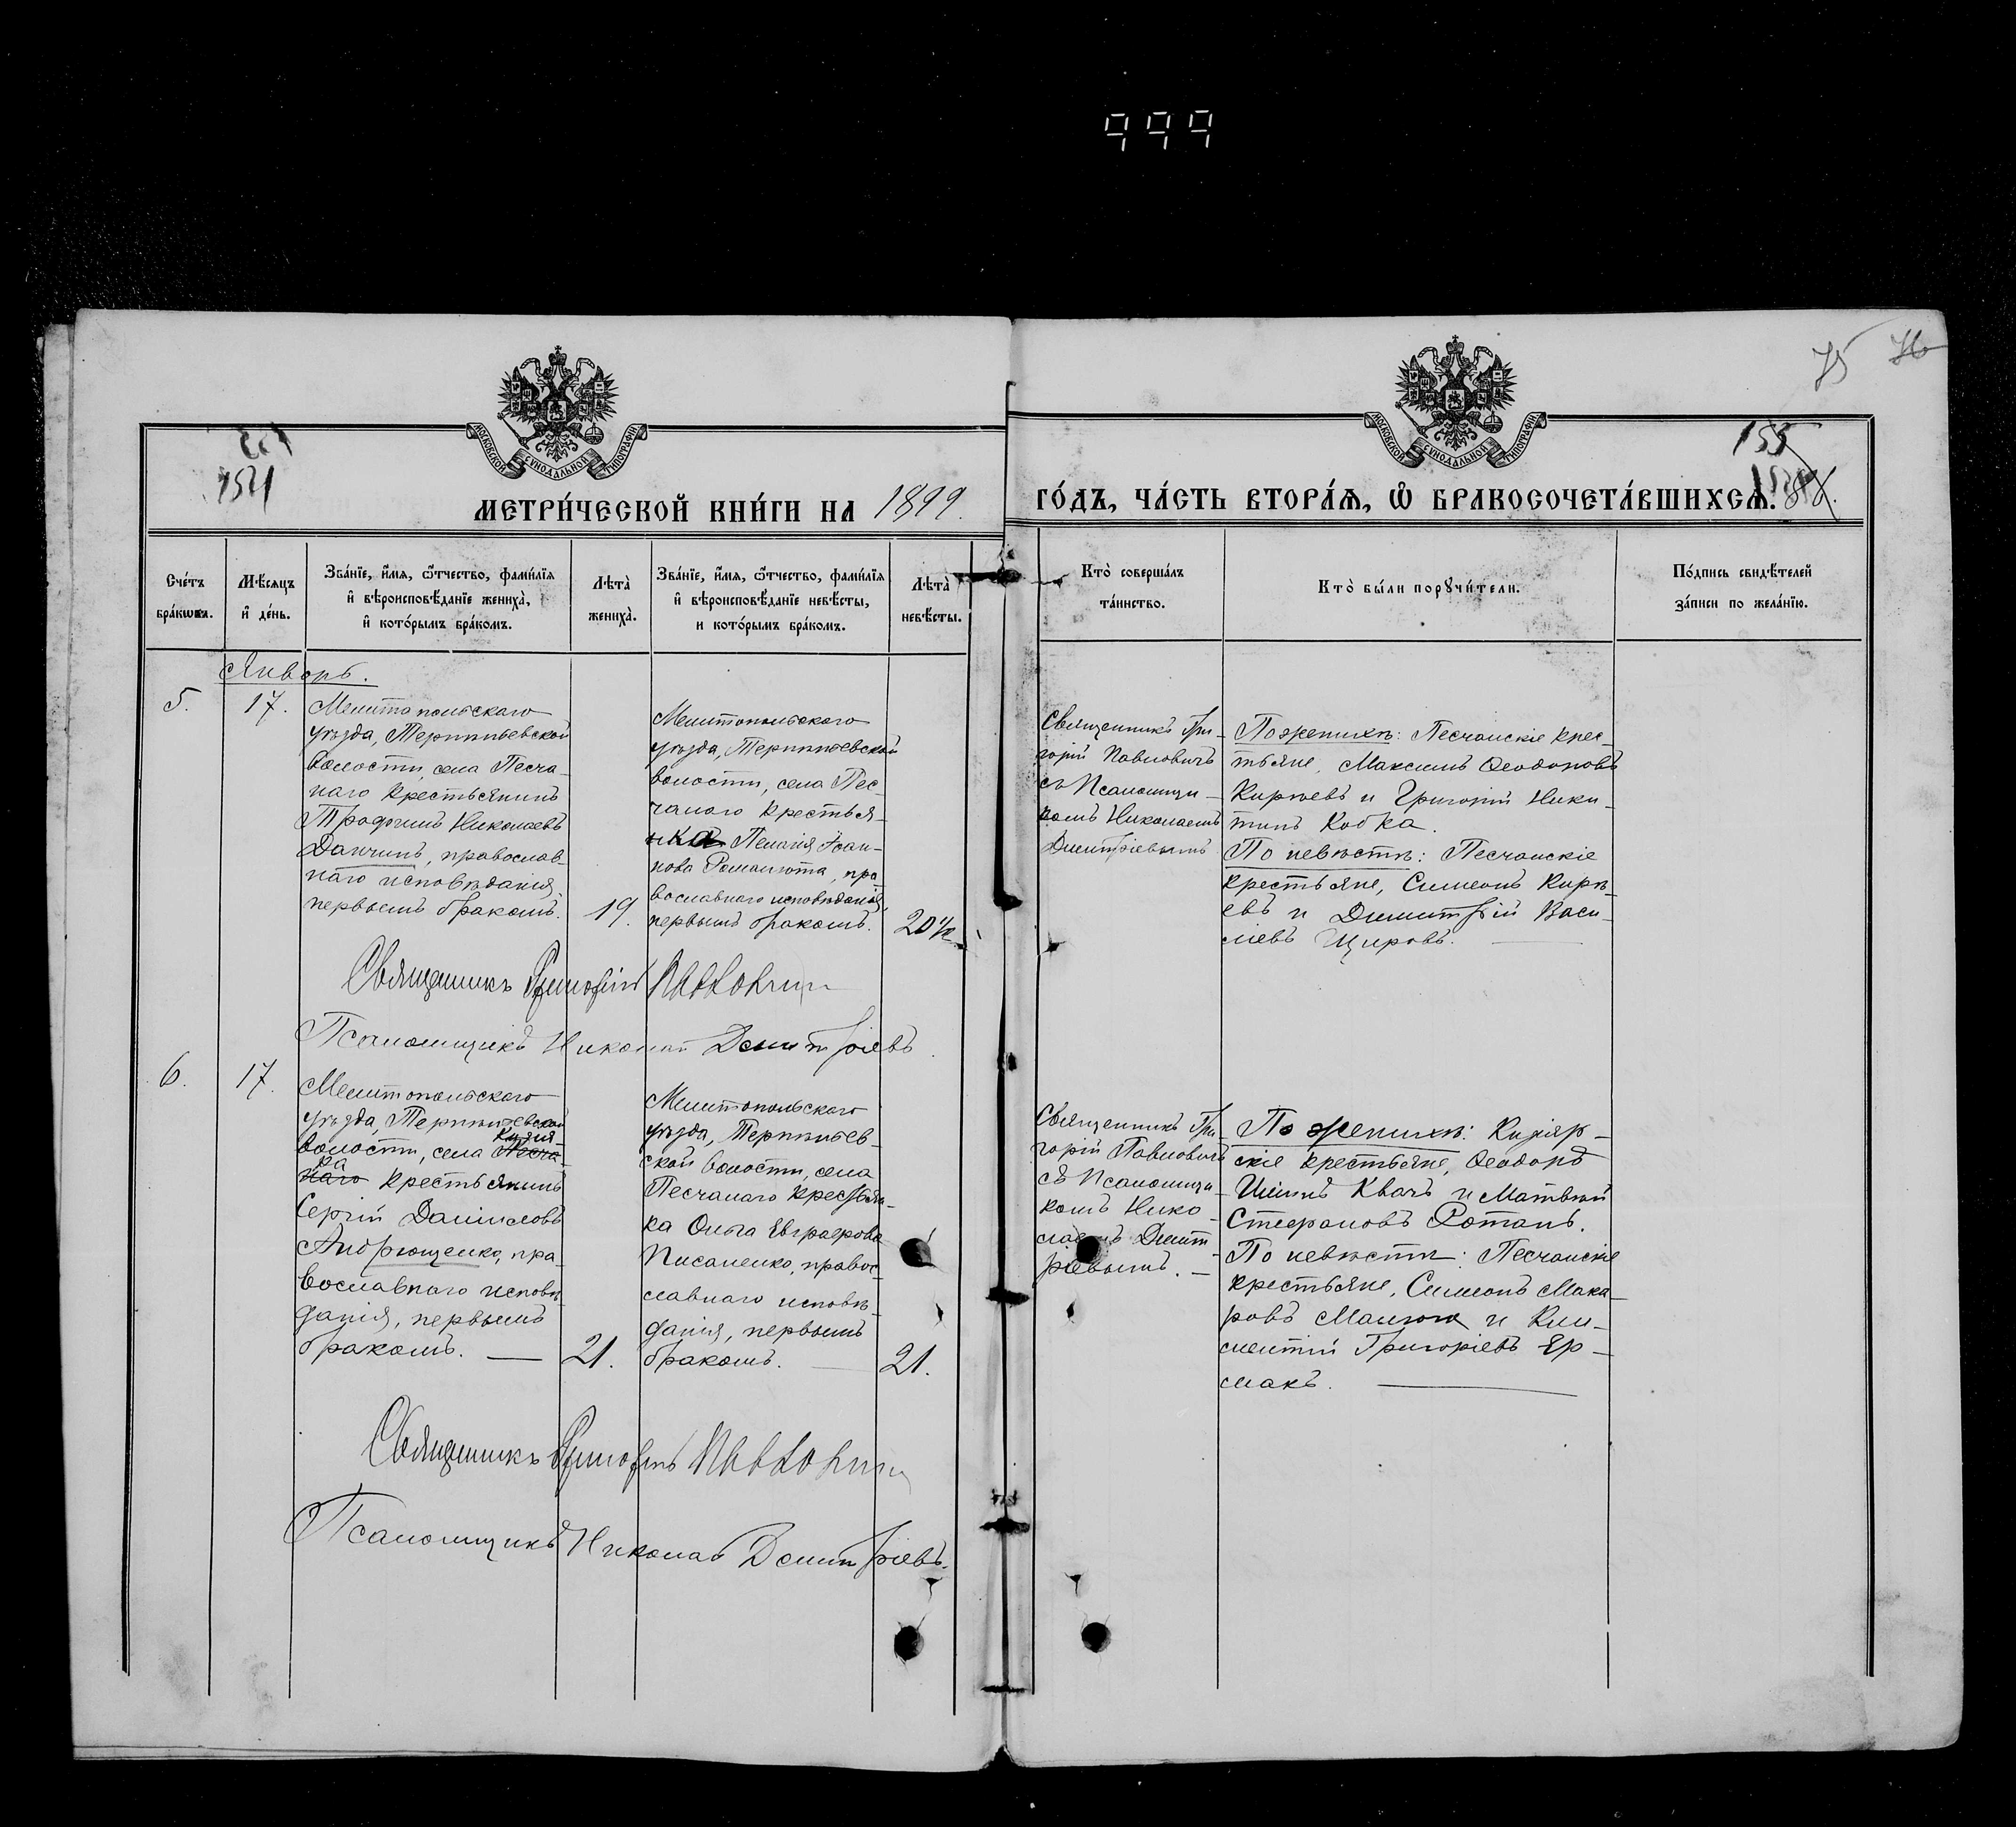 999
75 76
1521
155
МОСКОВСКОЙ СѴНОДАЛЬНОЙ ТИПОГРАФІИ
МОСКОВСКОЙ СѴНОДАЛЬНОЙ ТИПОГРАФІИ
МЕТРИ́ЧЕСКОЙ КНИ́ГИ НА 1899.
ГО́ДЪ, ЧА́СТЬ ВТОРА́Ѧ, Ѽ БРАКОСОЧЕТА́ВШИХСѦ.
Сче́тъ
бра́кѡвъ.
Мѣ́сяцъ
и҆ де́нь.
Зва́нїе, и҆́мя, ѻ҆́тчество, фамѝлїя
и҆ вѣроисповѣ́данїе жениха̀,
и҆ кото́рымъ бра́комъ.
Лѣта̀
жениха̀.
Зва́нїе, и҆́мя, ѻ҆́тчество, фамѝлїя
и҆ вѣроисповѣ́данїе невѣ́сты,
и кото́рымъ бра́комъ.
Лѣта̀
невѣ́сты.
Кто̀ соверша́лъ
та́инство.
Кто̀ бы́ли порꙋчи́тели.
По́дпись свидѣ́телей
за́писи по жела́нїю.
Январь.
5.
17.
Мелитопольскаго
уѣзда, Терпѣньевской
волости, села Песча-
наго крестьянинъ
Трофимъ Николаевъ
Данчинъ, православ-
наго исповѣданія,
первымъ бракомъ.
19.
Мелитопольскаго
уѣзда, Терпѣньевской
волости, села Пес-
чанаго крестья-
нка Пелагія Іоан-
нова Романюта, пра-
вославнаго исповѣданія,
первымъ бракомъ.
20½
Священникъ Гри-
горій Павловичъ
съ Псаломщи-
комъ Николаемъ
Димитріевымъ
По женихѣ: Песчанскіе крес-
тьяне, Максимъ Ѳеодоровъ
Кирѣевъ и Григорій Ники-
тинъ Кобка.
По невѣстѣ: Песчанскіе
крестьяне, Симеонъ Кирѣ-
евъ и Димитрій Васи-
ліевъ Щировъ.
Священникъ Григорій Павловичъ
Псаломщикъ Николай Димитріевъ
6.
17.
Мелитопольскаго
уѣзда, Терпѣньевской
волости, села Песча- Кизія-
наго ра крестьянинъ
Сергій Даніиловъ
Андрющенко, пра-
вославнаго исповѣ-
данія, первымъ
бракомъ.
21.
Мелитопольскаго
уѣзда, Терпѣньев-
ской волости, села
Песчанаго крестьян-
ка Ольга Евграфова
Писаненко, правос-
лавнаго исповѣ-
данія, первымъ
бракомъ.
21.
Священникъ Гри-
горій Павловичъ
съ Псаломщи-
комъ Нико-
лаемъ Димит-
ріевымъ.
По женихѣ: Кизіяр-
скіе крестьяне, Ѳеодоръ
Иліинъ Квачъ и Матвѣй
Стефановъ Ротань.
По невѣстѣ: Песчанскіе
крестьяне, Симеонъ Мака-
ровъ Манюта и Кли-
ментій Григоріевъ Ер-
макъ.
Священникъ Григорій Павловичъ
Псаломщикъ Николай Димитріевъ.